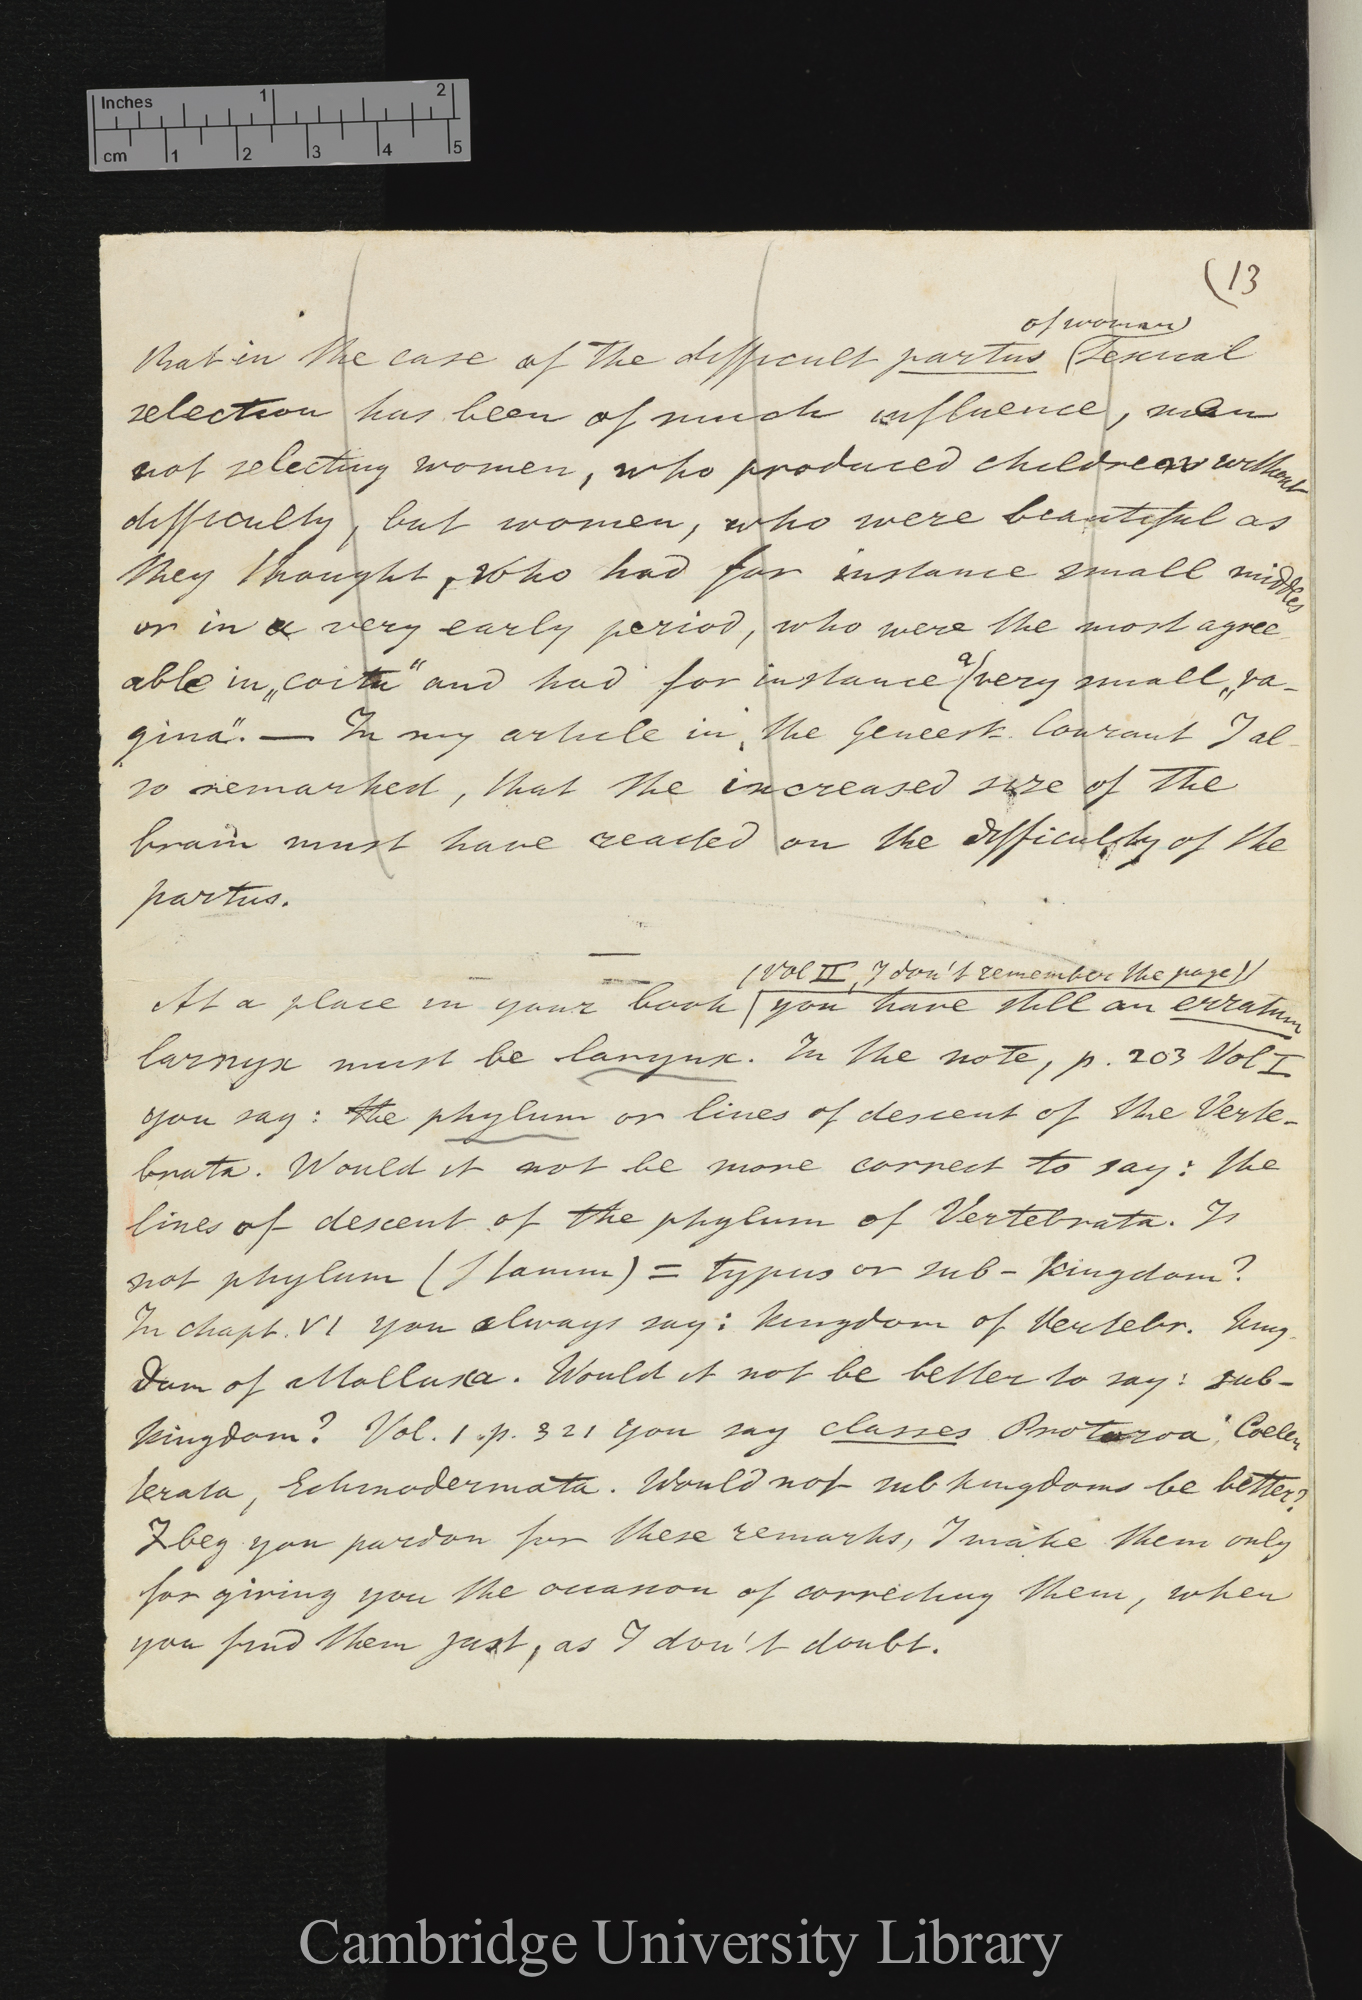 Inches 1 2
cm 1 2 3 4 5
(13
of woman)
that in the case of the difficult partus (sexual
selection has been of much influence, men
not selecting women, who produced children without
difficulty, but women, who were beautiful as
they thought, who had for instance small middles
or in a very early period, who were the most agree-
able in „coitu“ and had for instance a) (very small „va-
gina“. — In my article in the Geneesk. Courant I al-
so remarked, that the increased size of the
brain must have reacted on the difficulty of the
partus.
(Vol II, I don't remember the page))
At a place in your book (you have still an erratum
larnyx must be larynx. In the note, p. 203 Vol I
you say: the phylum or lines of descent of the Verte-
brata. Would it not be more correct to say: the
lines of descent of the phylum of Vertebrata. Is
not phylum (Stamm) = typus or sub-kingdom?
In chapt. VI you always say: kingdom of Vertebr. King-
dom of Mollusca. Would it not be better to say: sub-
kingdom? Vol. 1 p. 321 you say classes Protozoa, Coelen
terata, Echinodermata. Would not subkingdoms be better?
I beg you pardon for these remarks, I make them only
for giving you the occasion of correcting them, when
you find them just, as I don't doubt.
Cambridge University Library